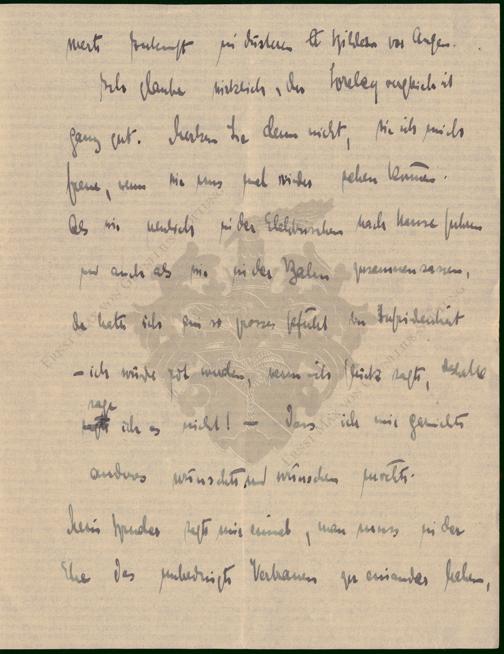 merte Zukunft in düsteren Bildern vor Augen.
Ich glaube wirklich, der Loreley vergleich ist
ganz gut. Merken Sie denn nicht, wie ich mich
freue, wenn wir uns mal wieder sehen können.
Als wir neulich in der Elektrischen nach Hause fuhren
und auch als wir in der Bahn zusammensassen,
da hatte ich ein so grosses Gefühl von Zufriedenheit
– ich würde rot werden, wenn ich's Glück sagte, deshalb
sage
ich es nicht! – Dass ich mir garnichts
anderes wünschte und wünschen möchte.
Mein Bruder sagte mir einmal, man muss in der
Ehe das unbedingte Vertrauen zu einander haben,